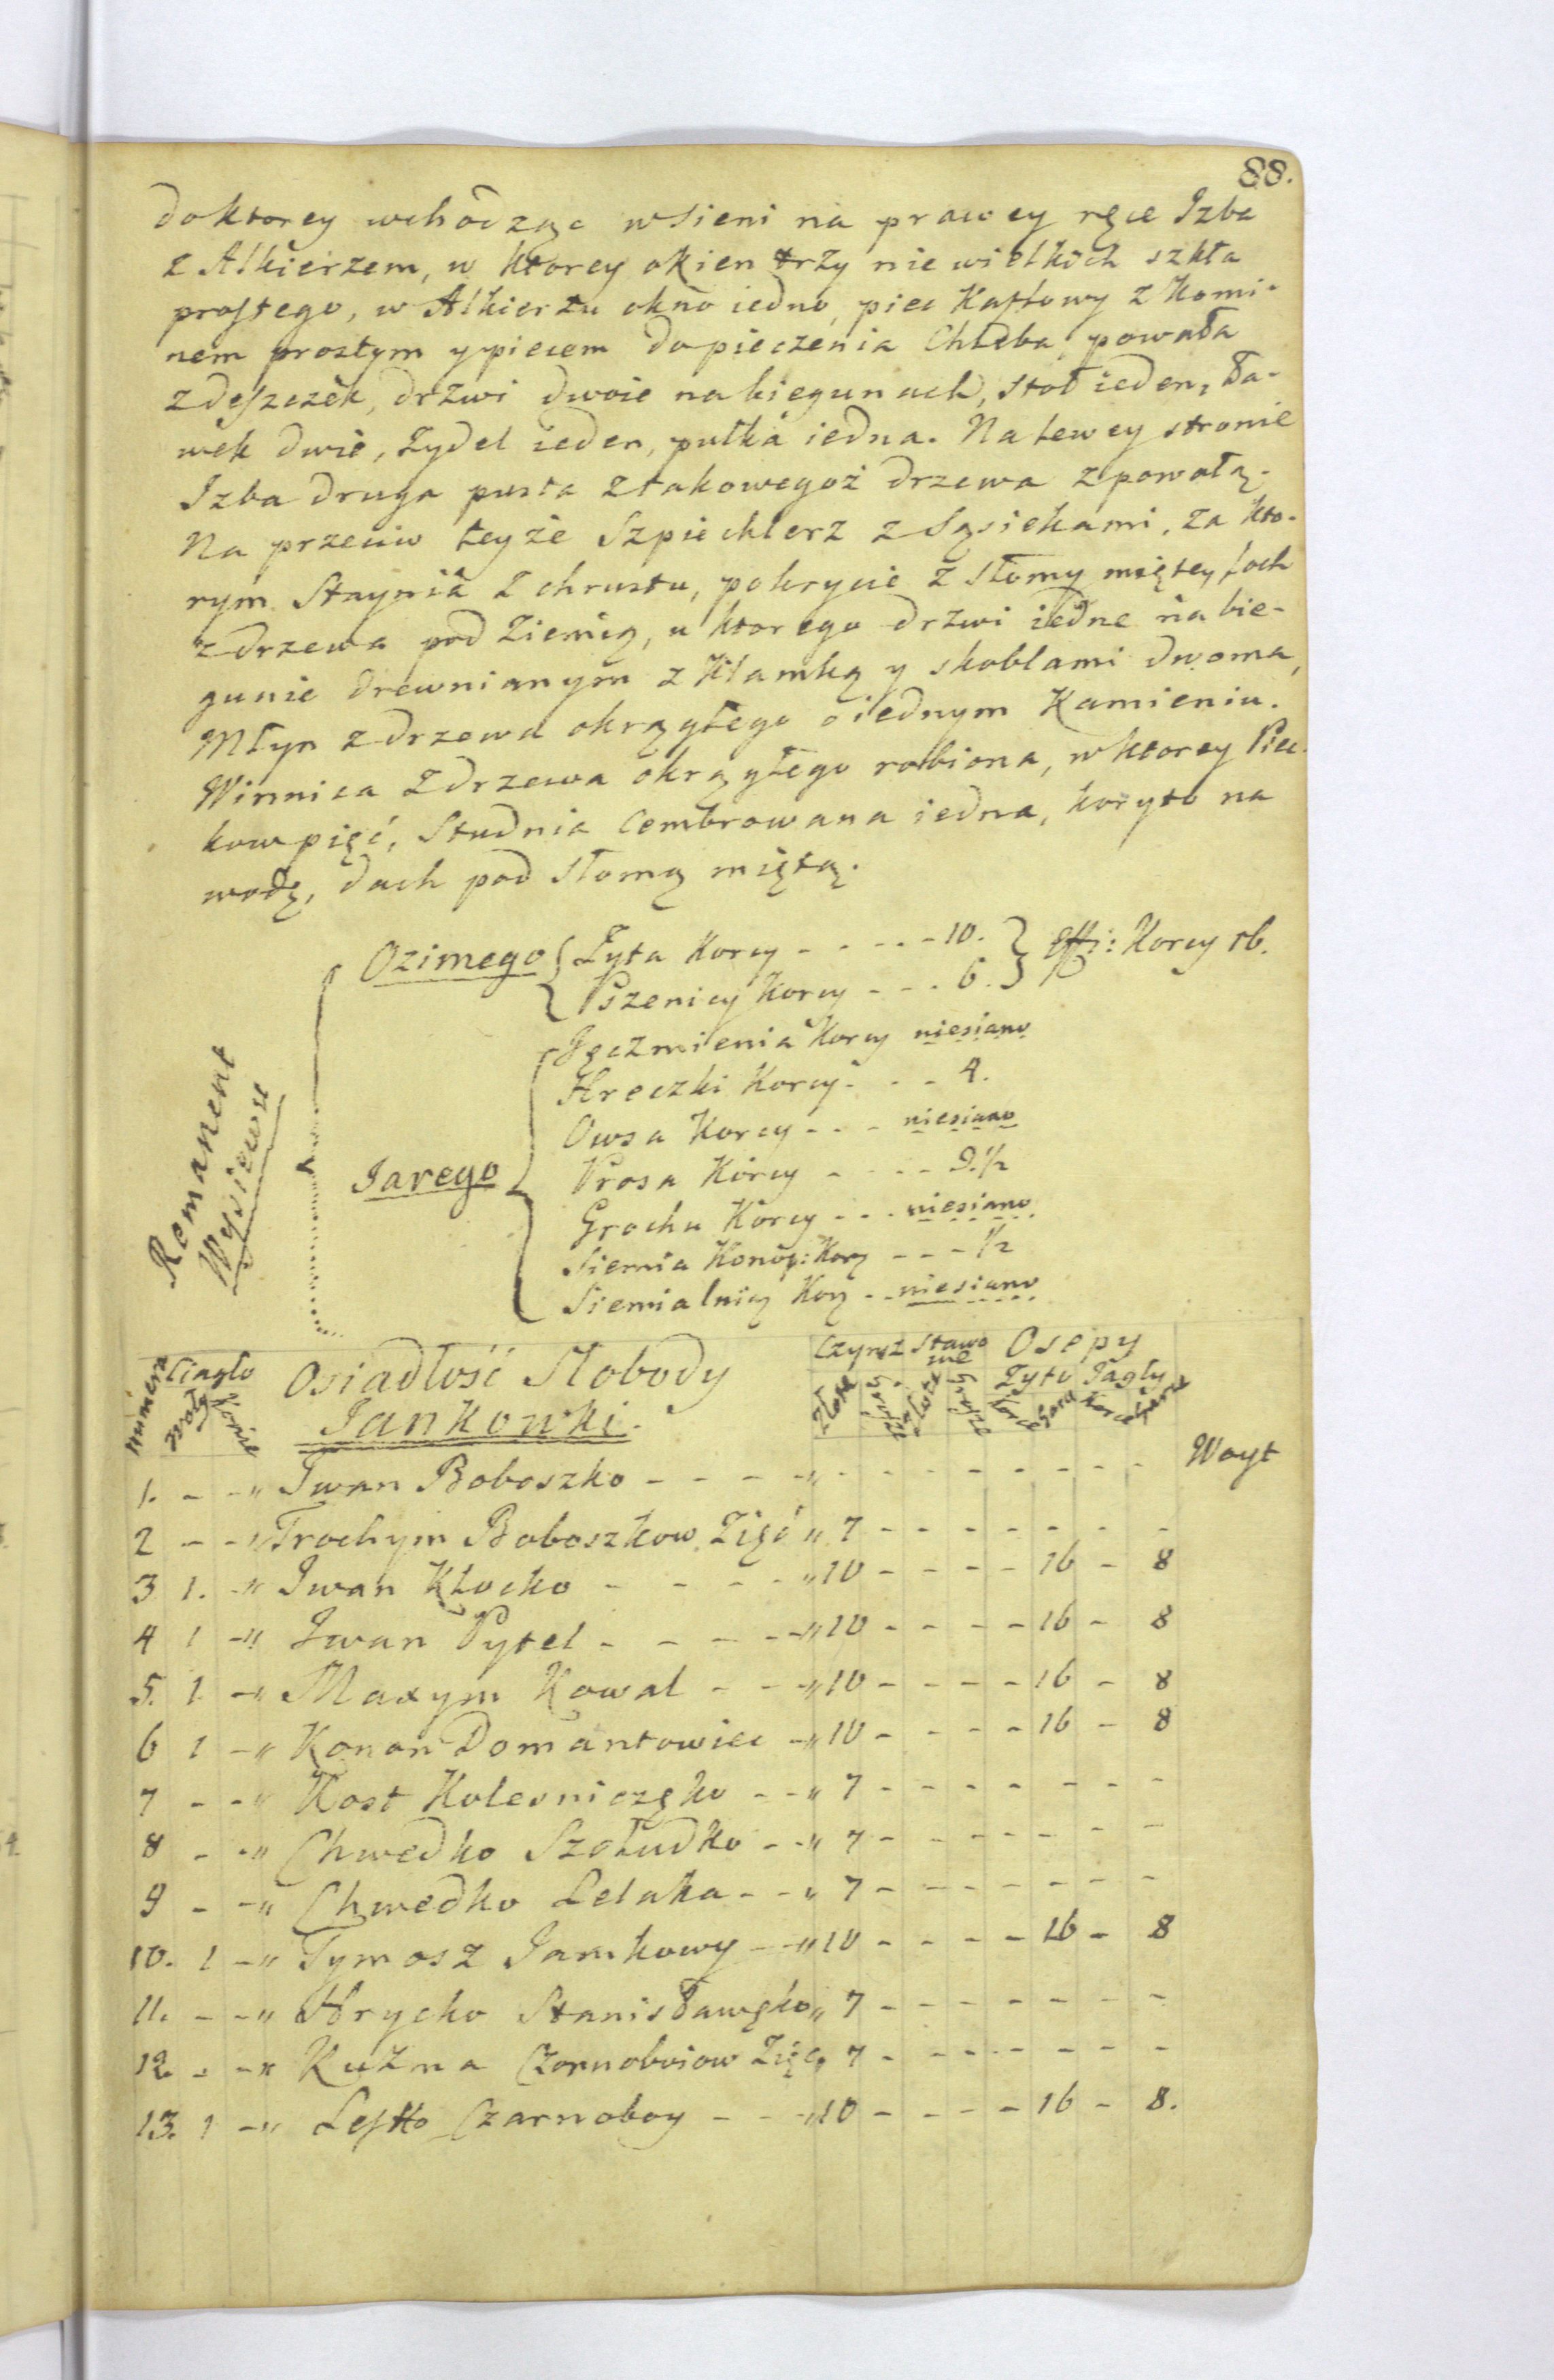 88.
doktorey wchodząc w Sieni na prawey ręce Izba
z Alkierzem, w ktorey okien trzy nie wielkich szkła
prostego, w Alkierzu okno iedno, piec Kaflowy z Komi-
nem prostym y piecem do pieczenia Chleba, powała
z deszczek, drzwi dwoie na biegunach, stoł ieden, ła-
wek dwie, Zydel ieden, pułka iedna. Na lewey stronie
Izba druga pusta z takowegoż drzewa z powałą.
Na przeciw teyże Szpichlerz z Sąsiekami, za kto-
rym Staynia z chrustu, pokrycie z słomy miętey, loch
z drzewa pod Ziemią, u ktorego drzwi iedne na bie-
gunie drewnianym z Klamką y skoblami dwoma,
Młyn z drzewa okrągłego o iednym Kamieniu.
Winnica z drzewa okrągłego robiona, w ktorey Piec-
kow pięć, Studnia Cembrowana iedna, koryto na
wodę, dach pod słomą miętą.
Remanent
Wysiewu
Ozimego { Zyta Korcy - - - - - 10. } Effi: Korcy 16.
Pszenicy Korcy - - - 6.
Jęczmienia Korcy niesiano
Hreczki Korcy - - - 4.
Owsa Korcy - - - niesiano
Jarego { Prosa Korcy - - - - 2.½
Grochu Korcy - - - niesiano
Siemia Konop: Korcy - - - ½
Siemialnicy Korcy - - niesiano
Numera Ciągło Osiadłość Słobody Czynsz Stawo Osepy
woły Konie we Zyto Jagły
Jankowki. Złote Grosze Złote Grosze Korce Garce Korce Garce
1. - - " Iwan Boboszko - - - - " - - - - - - - - Woyt
2 - - " Trochym Boboszkow Zięć " 7 - - - - - - -
3 1. - " Iwan Kłocko - - - - " 10 - - - - 16 - 8
4 1 - " Iwan Pytel - - - - " 10 - - - - 16 - 8
5. 1. - " Maxym Kowal - - - " 10 - - - - 16 - 8
6 1 - " Konon Domantowiec - " 10 - - - - 16 - 8
7 - - " Kost Kolesniczęko - - " 7 - - - - - - -
8 - - " Chwedko Szołudko - - " 7 - - - - - - -
9 - - " Chwedko Lelaka - - " 7 - - - - - - -
10. 1 - " Tymosz Jamkowy - - " 10 - - - - 16 - 8
11. - - " Hrycko Stanisławęko " 7 - - - - - - -
12. - - " Kuzma Czornoboiow Zięć " 7 - - - - - - -
13. 1 - " Lesko Czarnoboy - - - " 10 - - - - 16 - 8.